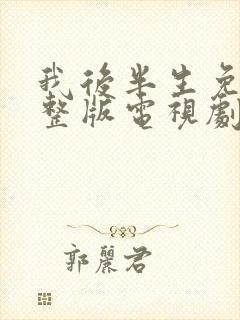 我後半生免
整版電視劇
郭麗君